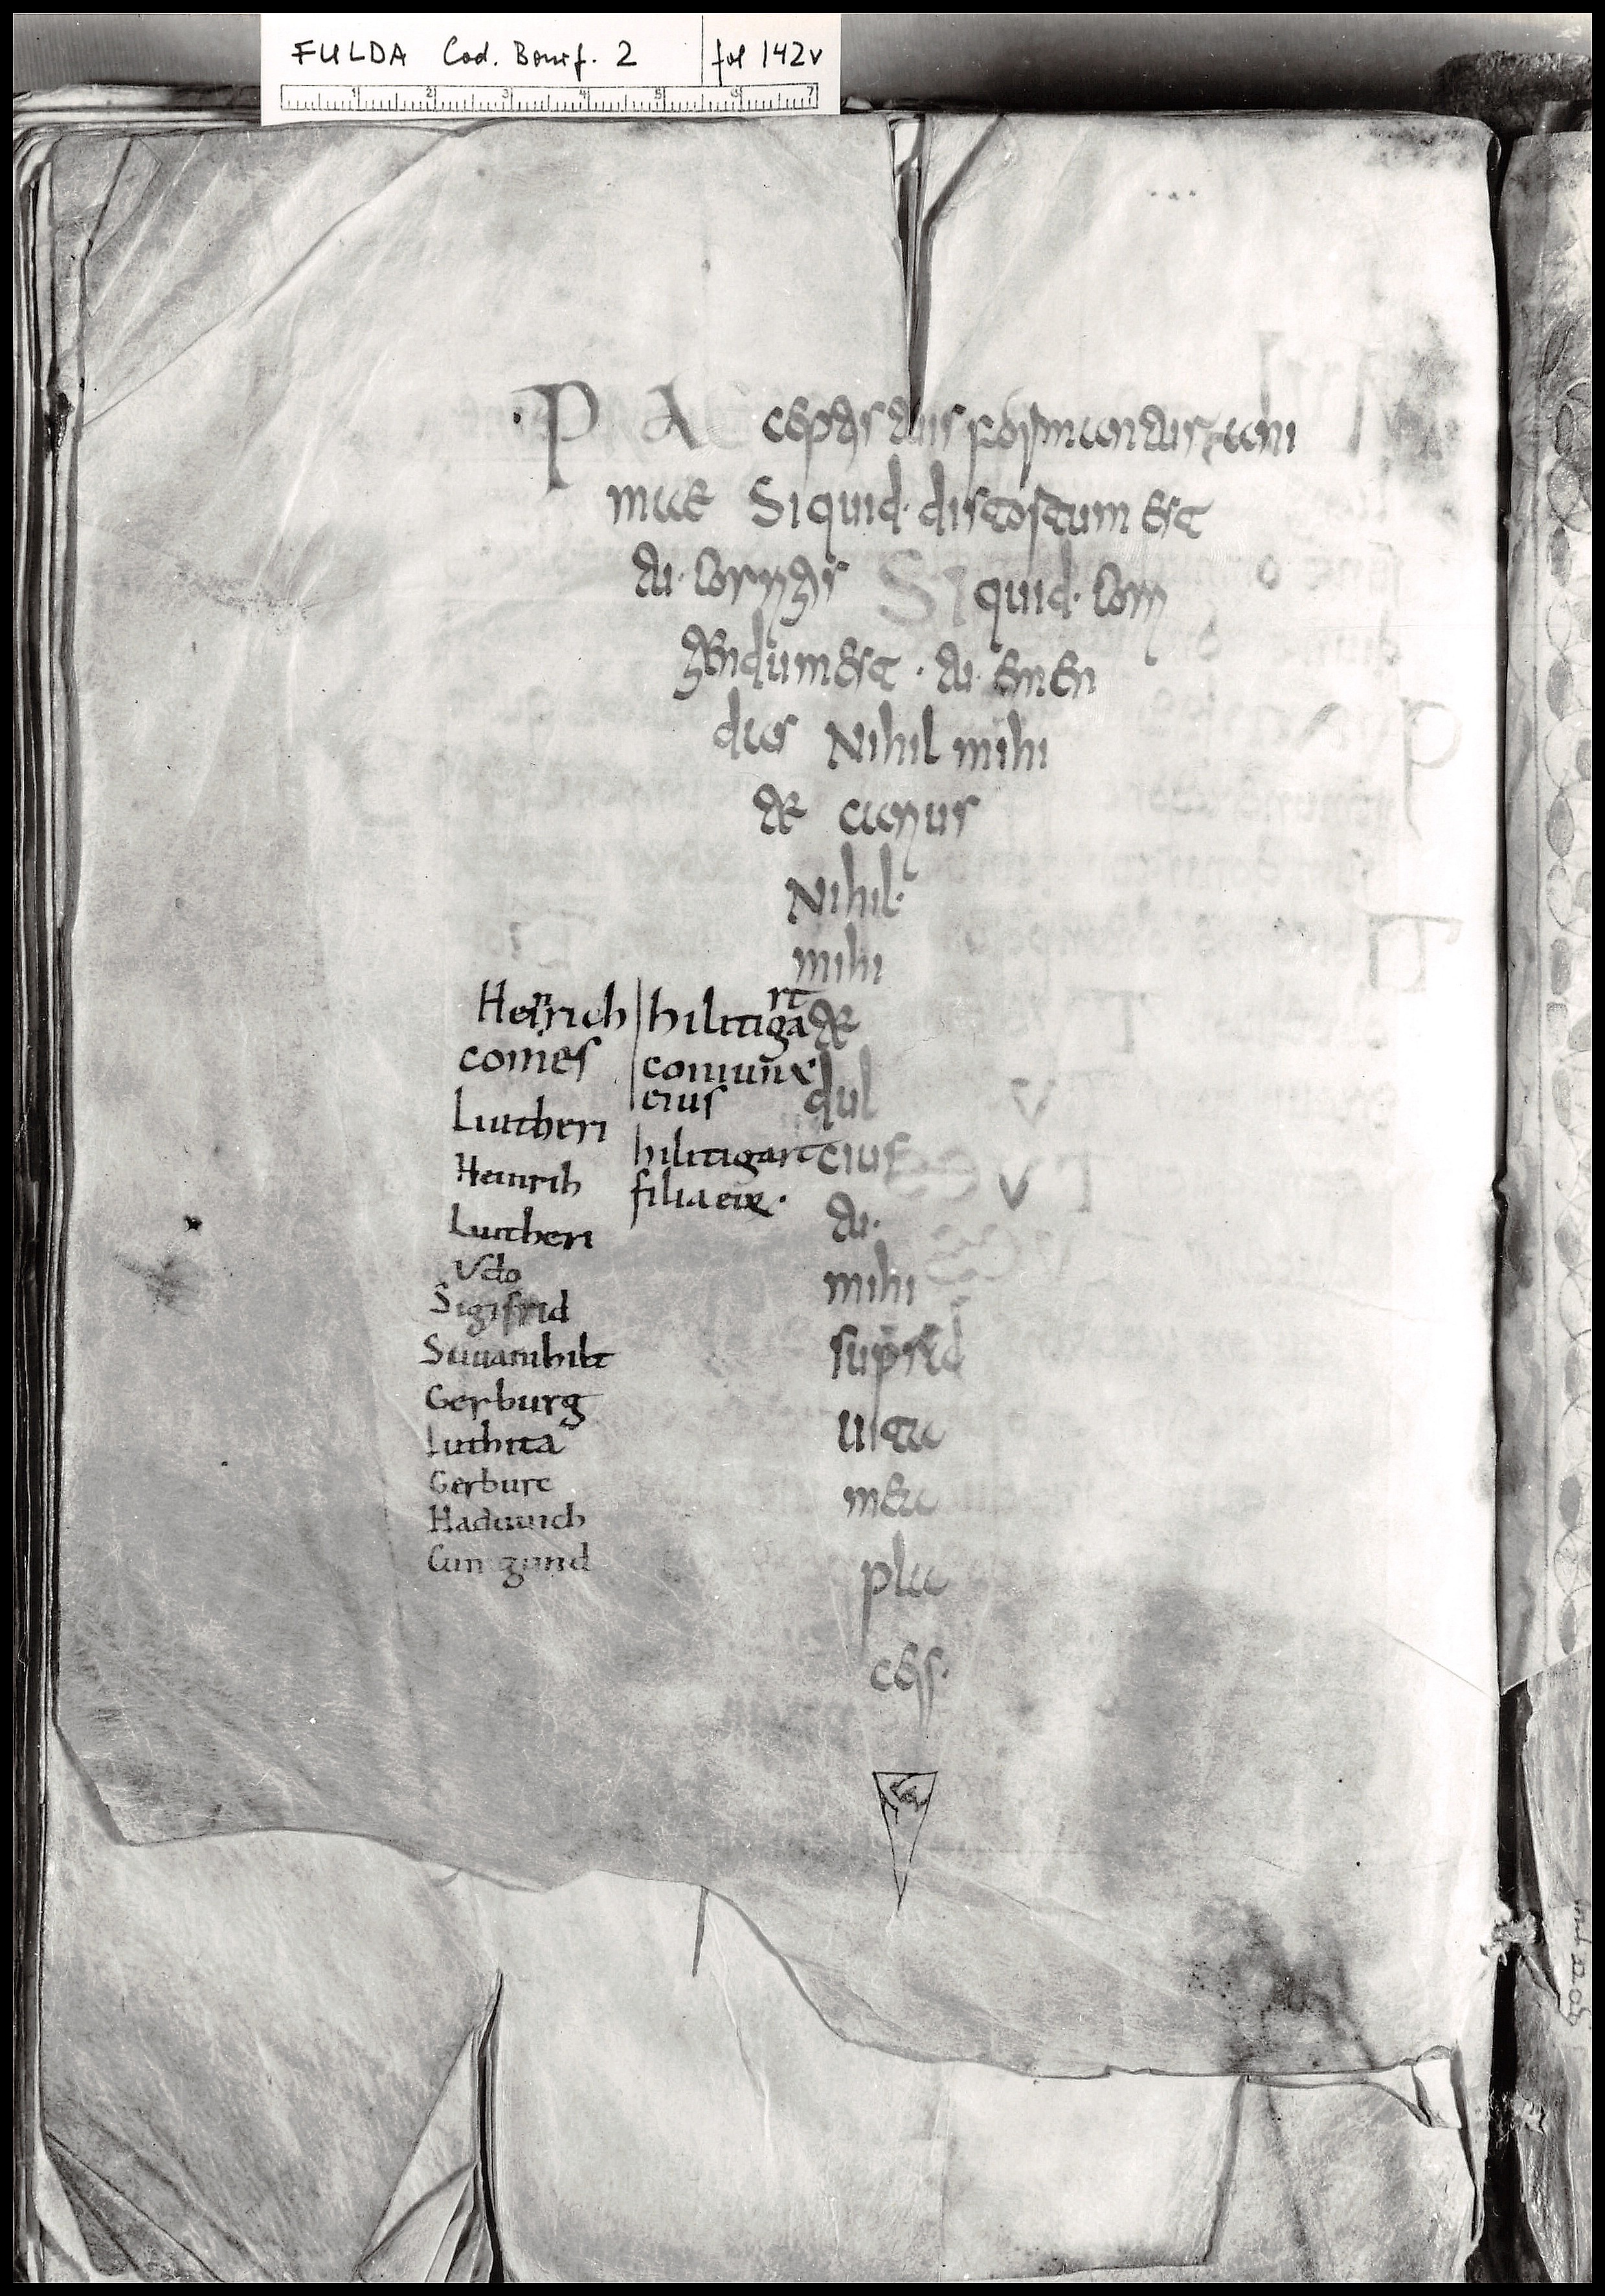 FULDA Cod. Bonif. 2 fol 142v
1 2 3 4 5 6 7
ceptis tuis ani
mae Si quid distortum est
tu corriges Si quid corri
gendum est tu emen
das Nihil mihi
te carius
Nihil
mihi
te
dul
cius
tu
mihi
uita
mea
pla
ces
Heinrich
comes
Liutheri
Heinrih
Liutheri
Udo
Sigifrid
Suuanihilt
Gerburg
Liuthita
Gerburc
Haduuich
Cunigund
hiltigart
coniunx
eius
hiltigart
filia eius